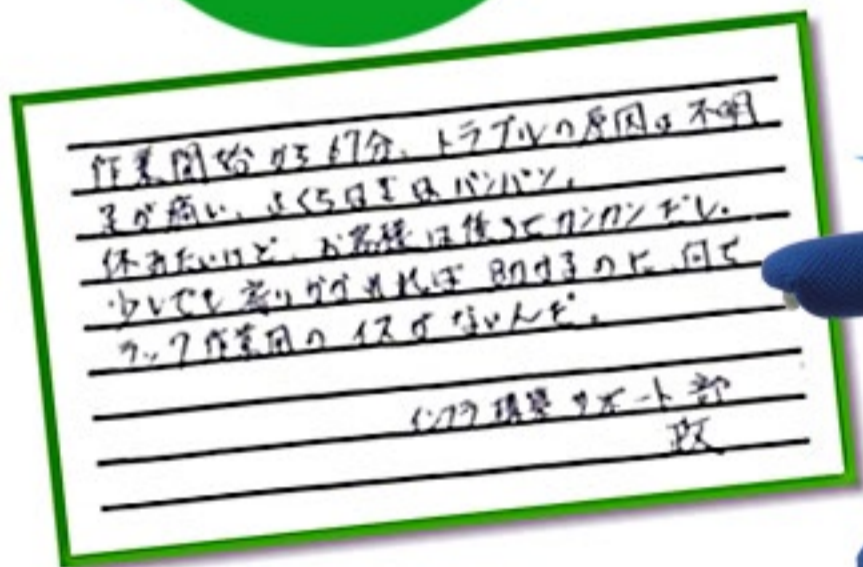 作業開始から67分、トラブルの原因は不明
足が痛い、ふくらはぎはパンパン。
休みたいけど、お客様は後ろでカンカンだし。
少しでも寄りかかれれば助かるのに、何で
ラック作業用のイスがないんだ。
インフラ構築サポート部